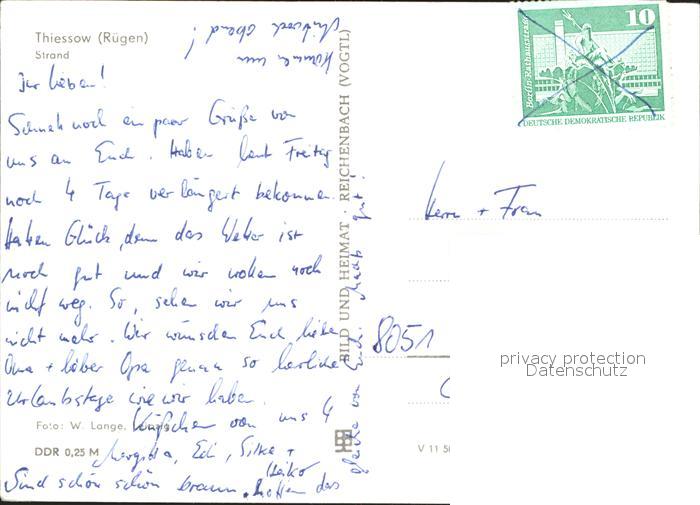 Thiessow (Rügen)
Strand
Ihr Lieben!
Schnell noch ein paar Grüße von
uns an Euch. Haben heut Freitag
noch 4 Tage verlängert bekommen.
Haben Glück, denn das Wetter ist
noch gut und wir wollen noch
nicht weg. So, sehen wir uns
nicht mehr. Wir wünschen Euch liebe
Oma + lieber Opa genau so herrliche
Urlaubstage wie wir haben.
Küßchen von uns 4
Foto: W. Lange,
DDR 0,25 M
Margitta, Edi, Silke +
Heiko
Sind schön schön braun. Hoffen das
gleiche von Euch. Macht's gut!
Kommen um
Mittwoch abend!
BILD UND HEIMAT · REICHENBACH (VOGTL)
10
Berlin-Rathausstraße
DEUTSCHE DEMOKRATISCHE REPUBLIK
Herrn + Frau
8051
privacy protection
Datenschutz
V 11 5